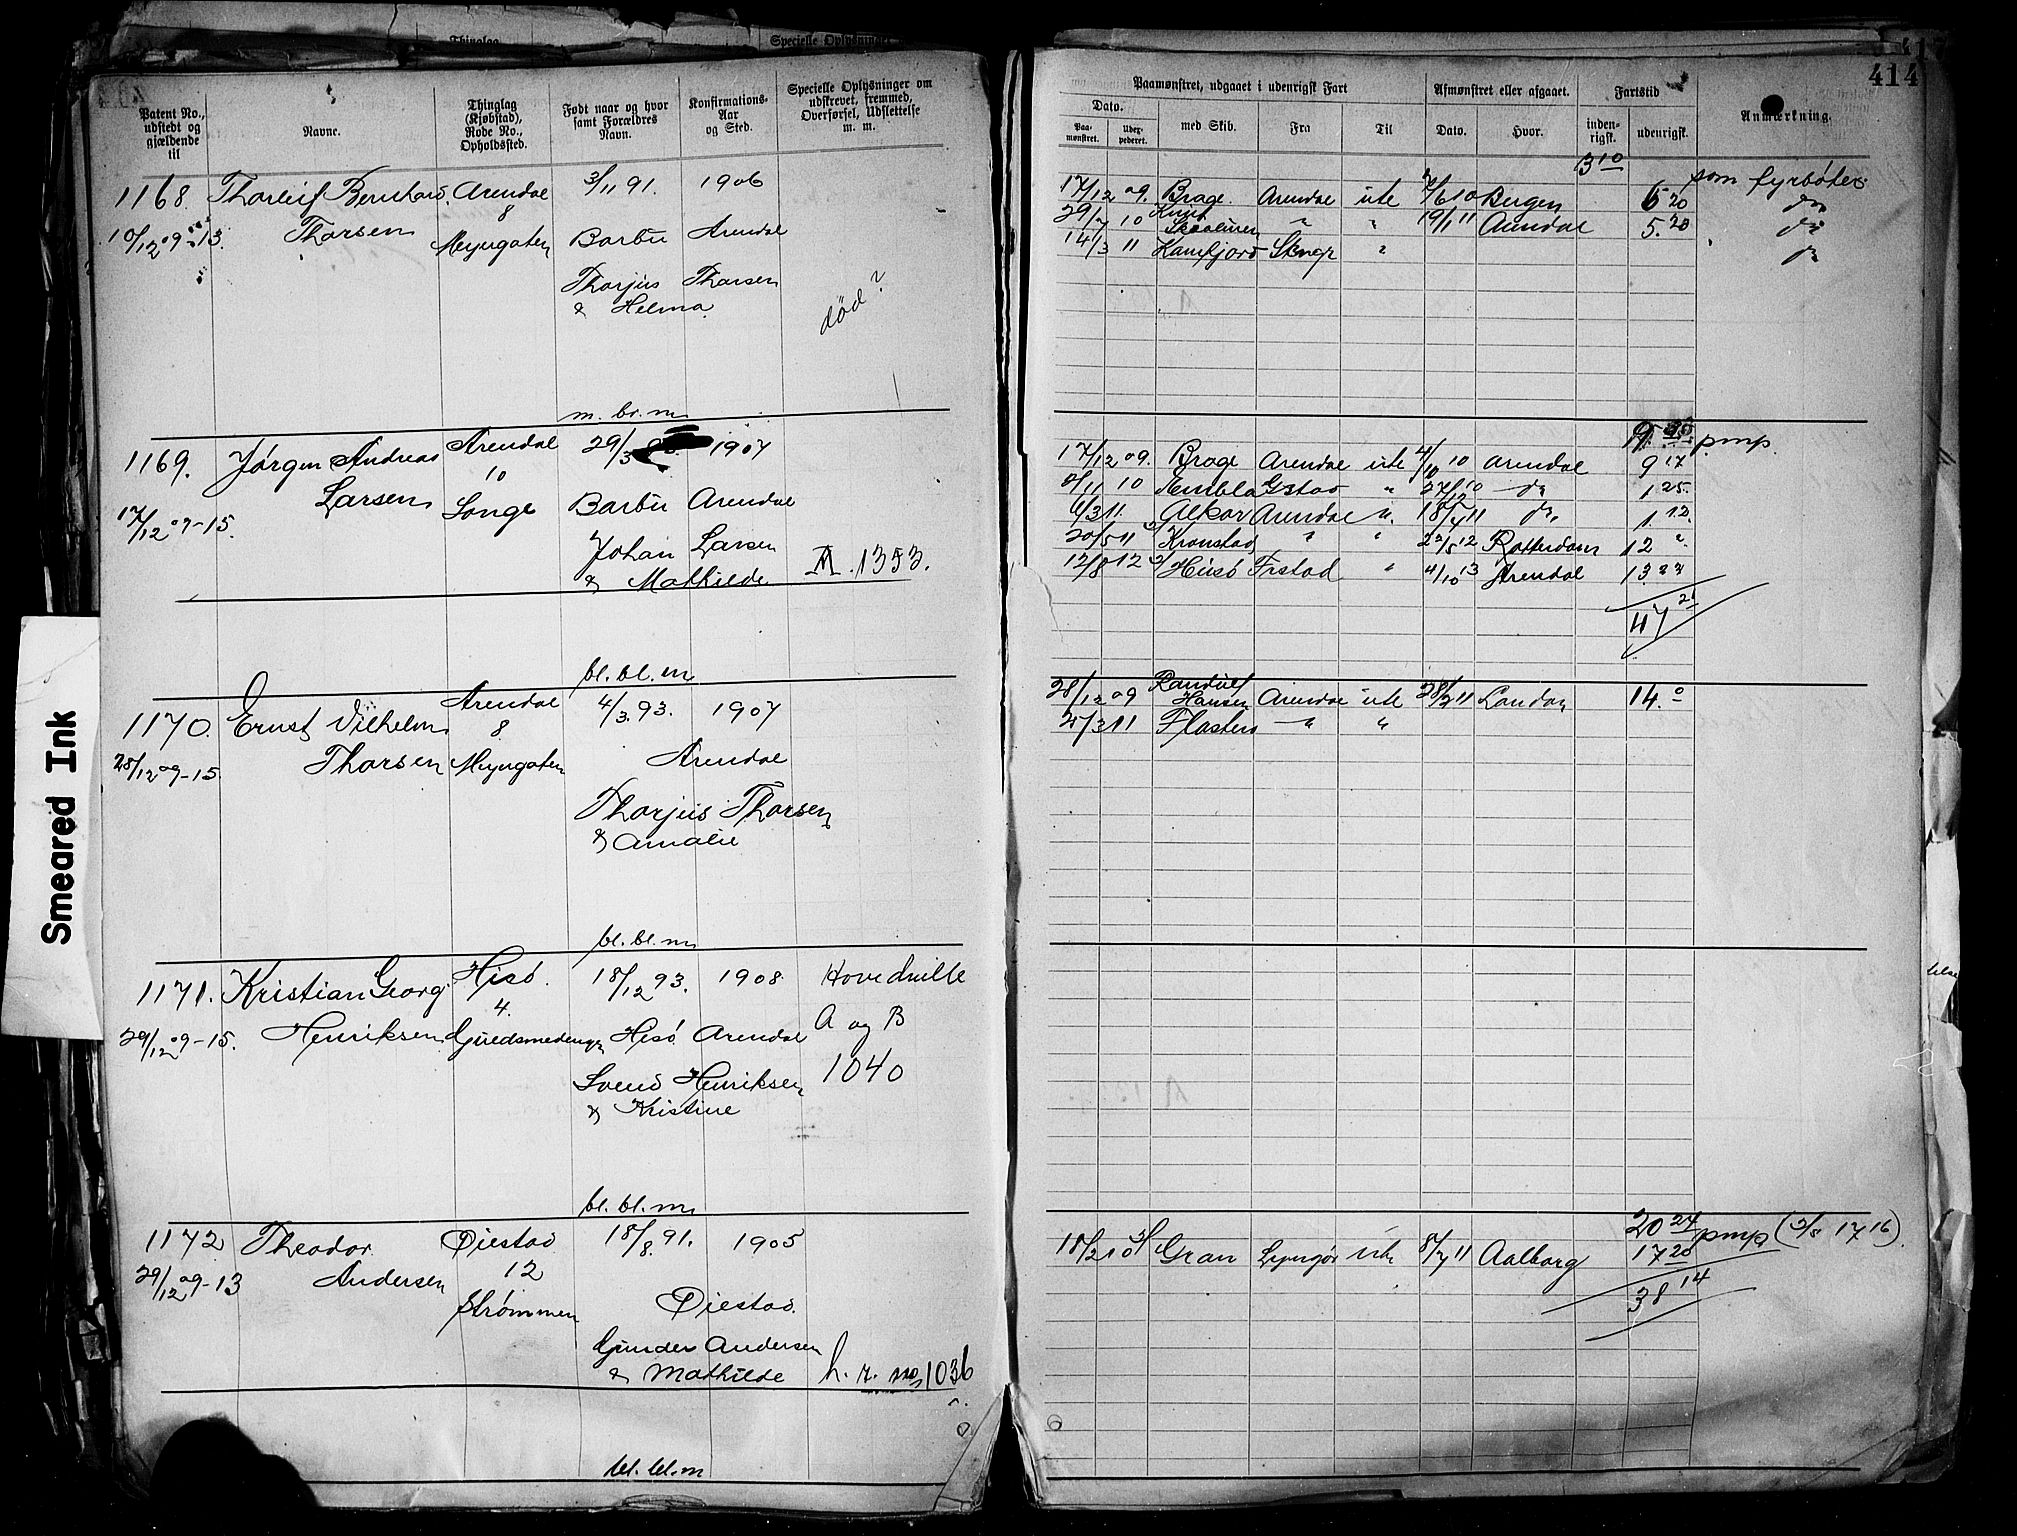 Thinglag
Specielle Oplysninger
Smeared Ink
Patent No., udstedt og gjældende til
Navne.
Thinglag (Kjøbstad), Rode No., Opholdssted.
Født naar og hvor samt Forældres Navn.
Konfirmations-Aar og Sted.
Specielle Oplysninger om udskrevet, fremmed, Overførsel, Udslettelse m. m.
1168. Thorleif Bernhard Arendal 3/11 91. 1906
8
10/12 09-13. Thorsen Myrgaten Barbu Arendal
Thorjus Thorsen
& Helma
død?
m. br. m
1169. Jørgen Andreas Arendal 29/3 1907
10
Larsen Songe Barbu Arendal
17/12 09-15.
Johan Larsen
& Mathilde A. 1353.
bl. bl. m
1170. Ernst Vilhelm Arendal 4/3. 93. 1907
8
28/12 09-15. Thorsen Myrgaten Arendal
Thorjus Thorsen
& Amalie
bl. bl. m
1171. Kristian Georg Hisø. 18/12 93. 1908 Hovedrulle
4.
29/12 09-15. Henriksen Hisø Arendal A og B
Svend Henriksen 1040
& Kristine
bl. bl. m
1172 Theodor Øiestad 18/8. 91. 1905
12
29/12 09-13 Andersen Strømmen Øiestad.
Gunder Andersen
& Mathilde h. r. no 1036
bl. bl. m
414
Paamønstret, udgaaet i udenrigsk Fart
Afmønstret eller afgaaet.
Fartstid
Anmærkning.
Dato.
Paamønstret.
med Skib.
Fra
Til
Dato.
Hvor.
indenrigsk.
udenrigsk.
3 10
som fyrbøter
17/12 09. Brage Arendal ute 7/6 10 Bergen 6 20 do
29/7 10 Knut Skaaluren " " 19/1 11 Arendal 5. 20 do
14/3 11 "  do
pmp.
17/12 09. Brage Arendal ute 4/10 10 Arendal 9 17
11 10 Embla Gstad " 27/12 10 do 1 25.
6/3 11. Alkor Arendal ". 18/4 11 do. 1 12.
20/5 11 Kronstad " " 5 12 Rotterdam 12 "
12/8 12 Hisø Frstad " 4/10 13 Arendal 13
47
28/12 09 Randulf Hansen Arendal ute 28/2 11 London 14. 0
3 11 " "
20 24 pmp ( 17 16)
18/2 10 Gran Lyngør ute 8/7 11 Aalborg 17 20
38 14